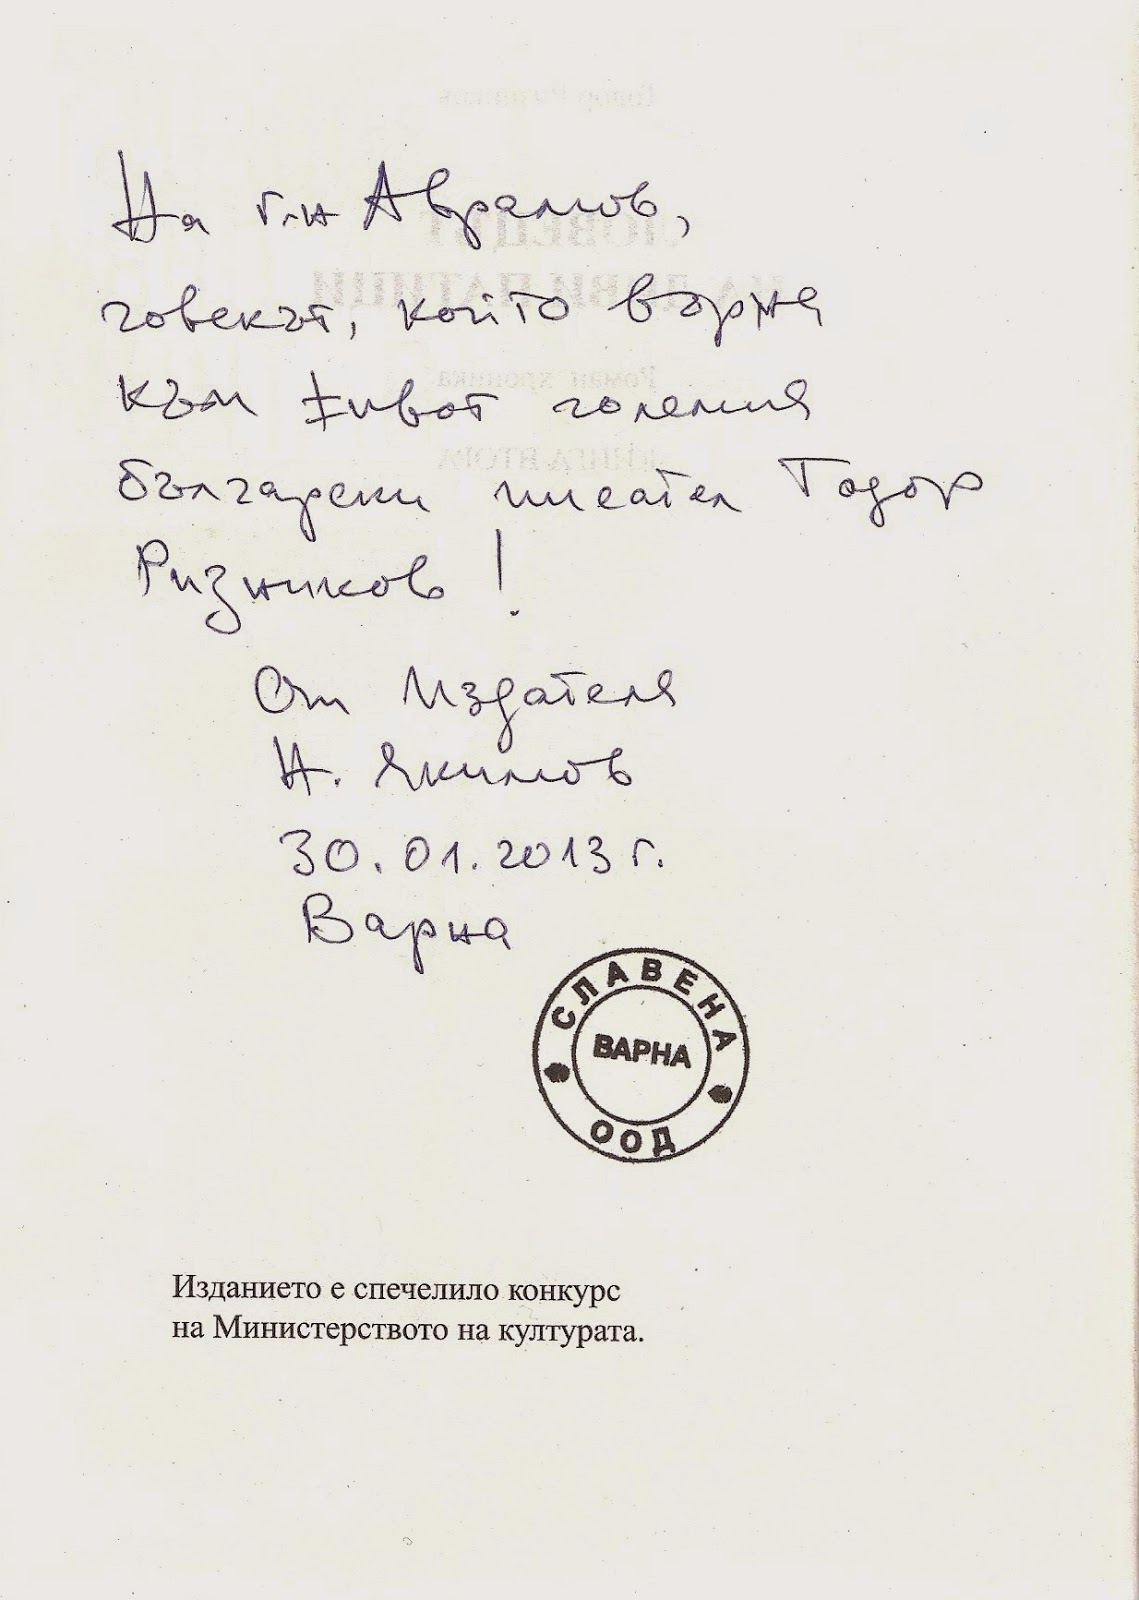 На г-н Аврамов,
човекът, който върна
към живот големия
български писател Тодор
Ризников!
От Издателя
Н. Якимов
30.01.2013 г.
Варна
СЛАВЕНА
ВАРНА
ООД
Изданието е спечелило конкурс
на Министерството на културата.